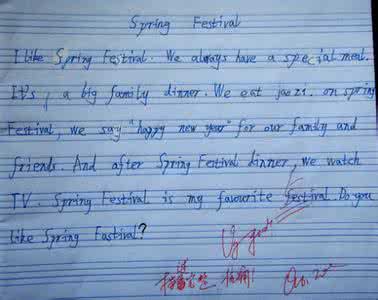 Spring Festival
I like Spring Festival. We always have a special meal.
It's, a big family dinner. We eat jaozi. on spring
Festival, we say "happy new year" for our family and
friends. And after Spring Festival dinner, we watch
TV. Spring Festival is my favourite festival. Do you
like Spring Fastival?
good